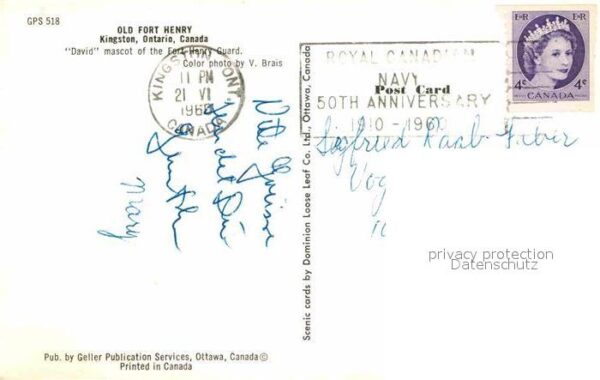 GPS 518
OLD FORT HENRY
Kingston, Ontario, Canada
"David" mascot of the Fort Henry Guard.
Color photo by V. Brais
KINGSTON ONT
11 PM
21 VI
1960
CANADA
ROYAL CANADIAN
NAVY
50TH ANNIVERSARY
1910-1960
Post Card
E R E R
4c CANADA 4c
Siegfried Raab-Faber
Mary
Scenic cards by Dominion Loose Leaf Co. Ltd., Ottawa, Canada
privacy protection
Datenschutz
Pub. by Geller Publication Services, Ottawa, Canada ©
Printed in Canada